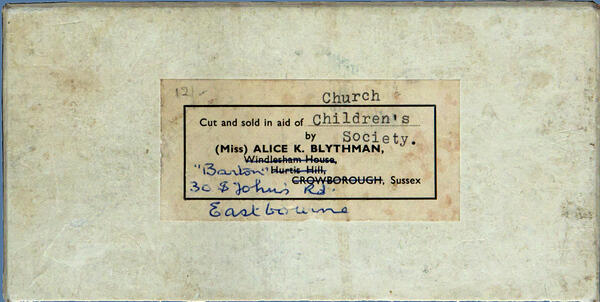 12/-
Church
Cut and sold in aid of Children's
by Society.
(Miss) ALICE K. BLYTHMAN,
Windlesham House,
"Barton" Hurtis Hill,
CROWBOROUGH, Sussex
30 St John's Rd.
Eastbourne